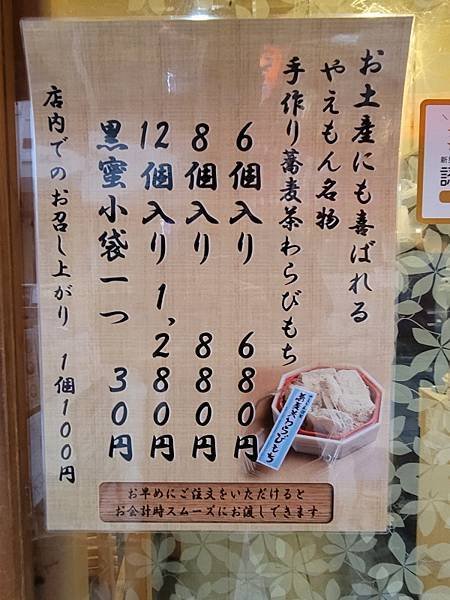 お土産にも喜ばれる
やえもん名物
手作り蕎麦茶わらびもち
6個入り 680円
8個入り 880円
12個入り 1,280円
黒蜜小袋一つ 30円
店内でのお召し上がり 1個100円
蕎麦茶わらびもち
お早めにご注文をいただけると
お会計時スムーズにお渡しできます